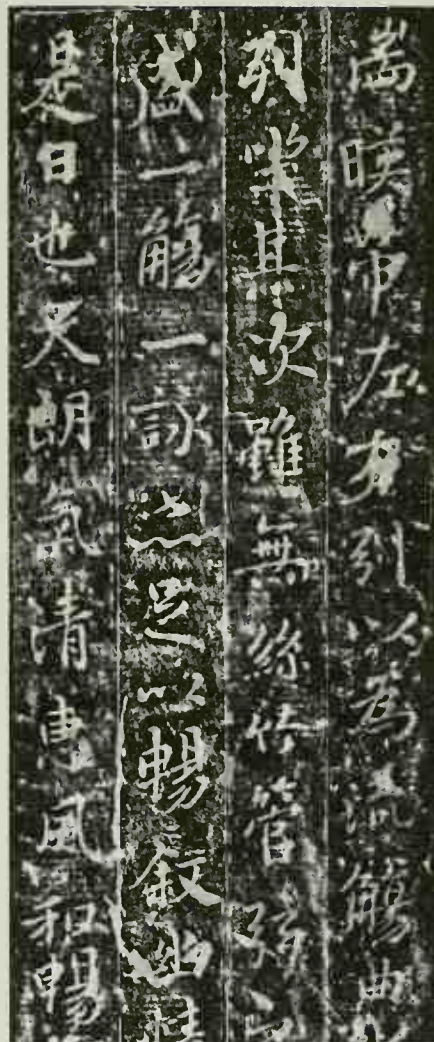 湍暎帶左右引以為流觴曲
列坐其次雖無絲竹管弦之
盛一觴一詠亦足以暢敘幽情
是日也天朗氣清惠風和暢